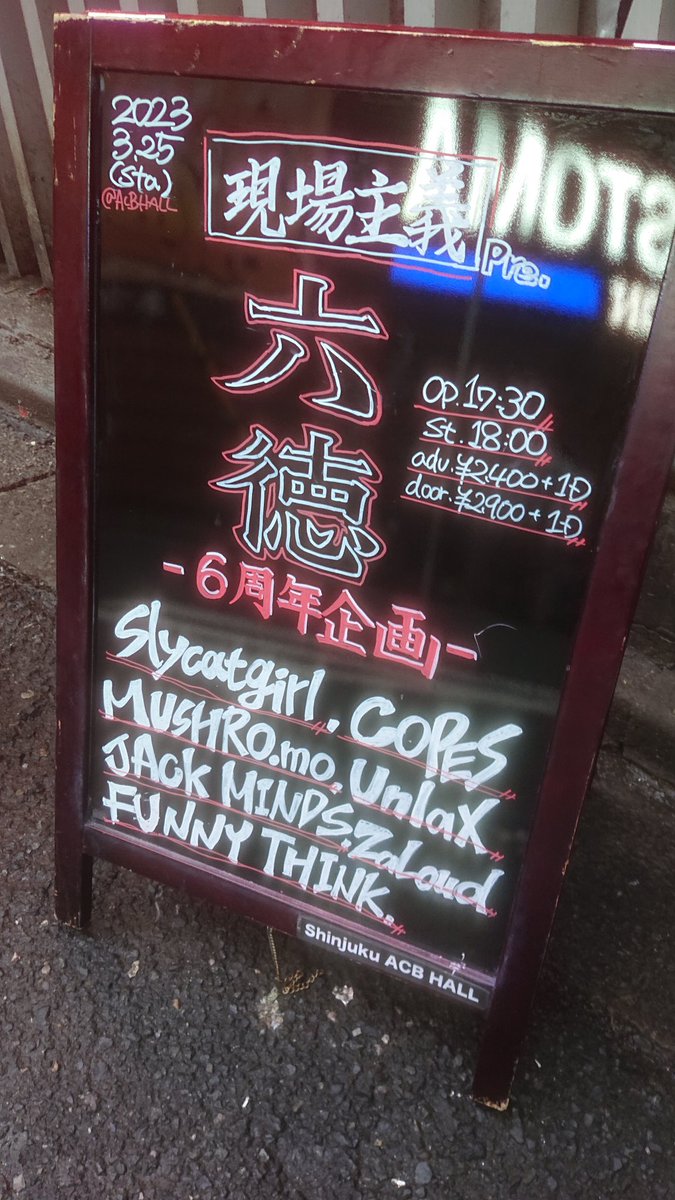 2023
3.25
(sta)
@ACBHALL
現場主義 Pre.
六徳
-6周年企画-
OP.17:30
St.18:00
adv.¥2.400+1D
door.¥2.900+1D
Slycatgirl. COPES
MUSHRO.mo. UnlaX
JACK MINDS. ZaLoud
FUNNY THINK.
Shinjuku ACB HALL